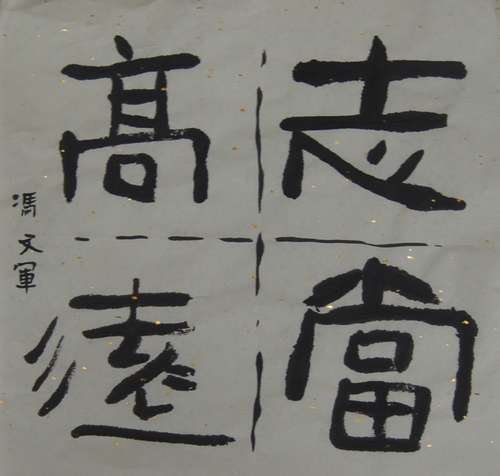 志當
高遠
馮文軍